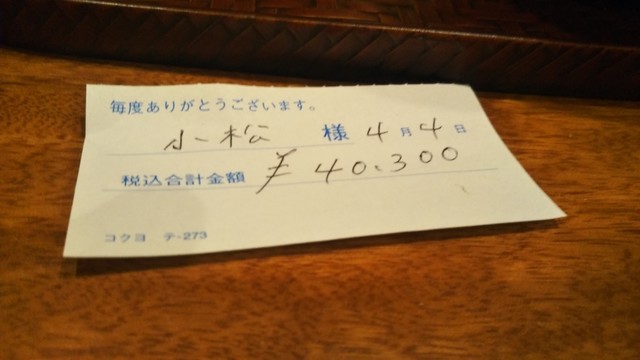 毎度ありがとうございます。
小松 様 4月4日
税込合計金額 ¥40,300
コクヨ テ-273